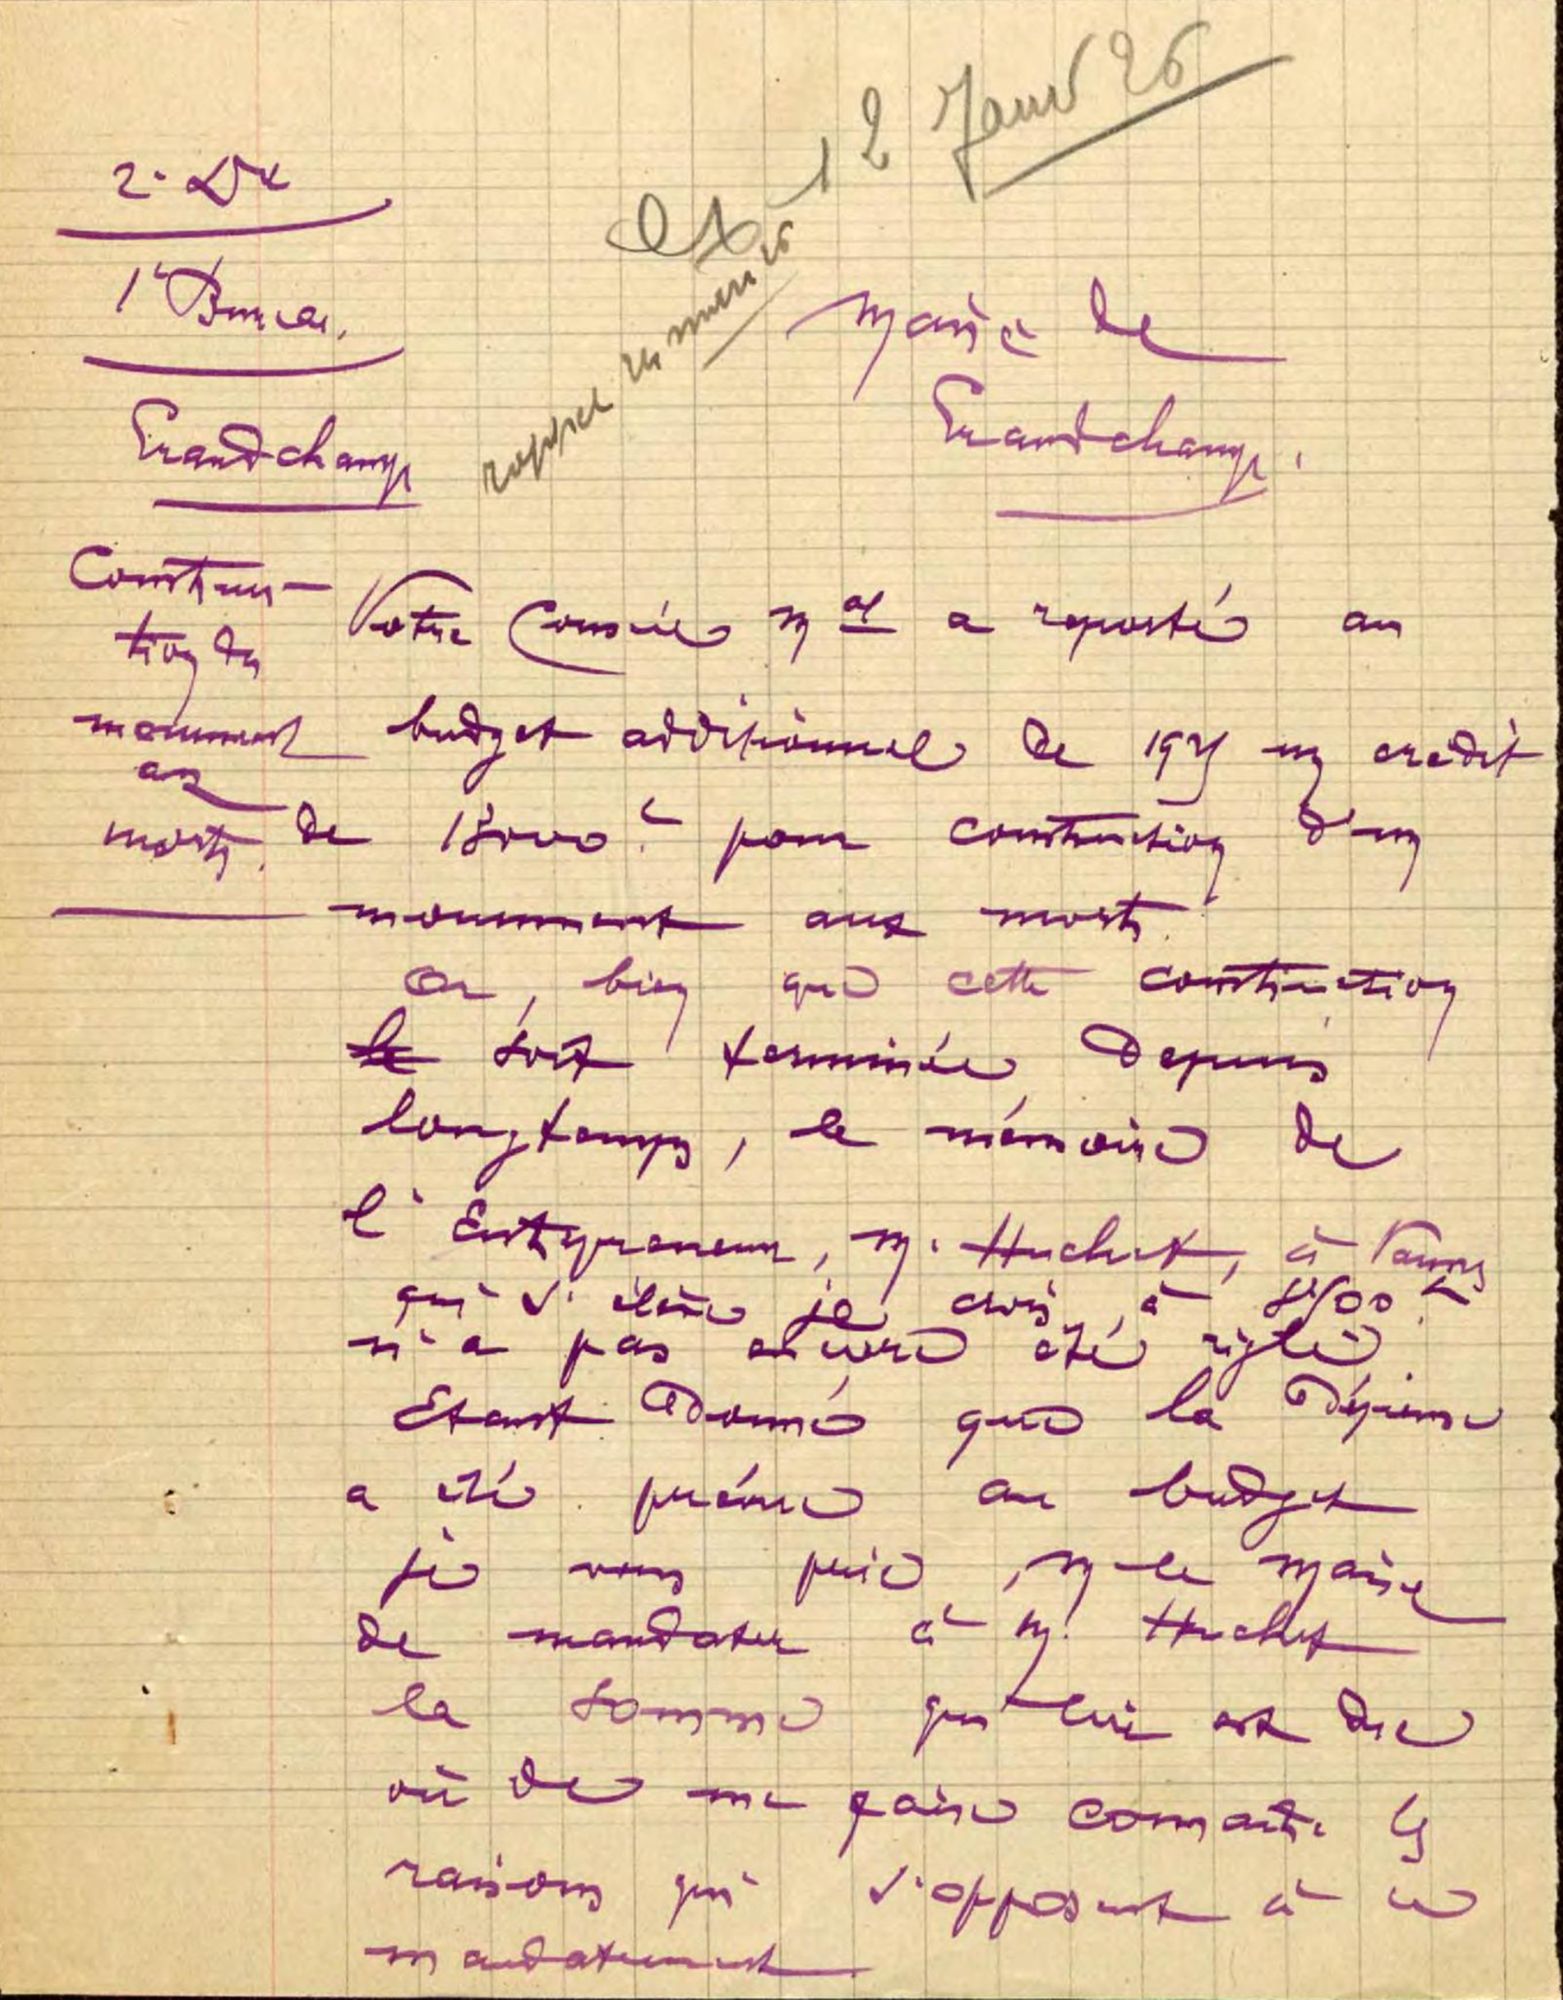 12 Janv 26
Ex
rappel en mars 26
2e Don
1er Bureau.
Grandchamp
Construc-
tion du
monument
aux
morts.
Maire de
Grandchamp.
Votre Conseil Mal a reporté au
budget additionnel de 1925 un crédit
de pour construction d'un
monument aux morts.
Or, bien que cette construction
soit terminée depuis
longtemps, le mémoire de
l'Entrepreneur, M. Huchet, à Vannes
qui s'élève je crois, à
n'a pas encore été réglé.
Etant donné que la dépense
a été prévue au budget
je vous prie, M le Maire
de mandater à M. Huchet
la somme qui lui est due
ou de me faire connaître les
raisons qui s'opposent à ce
mandatement